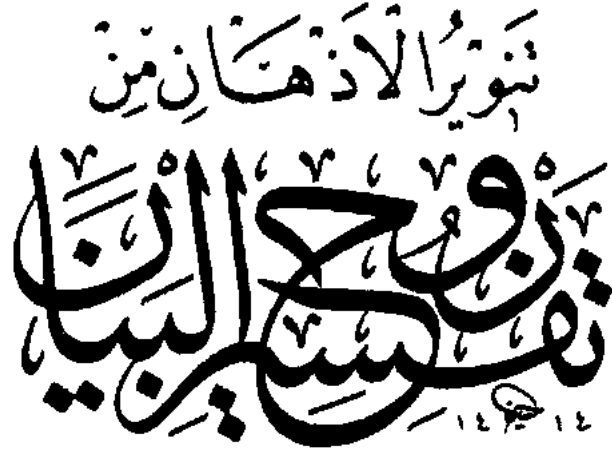 تَنْوِيرُ الْأَذْهَانِ مِنْ
تفسير روح البيان
١٤١٤